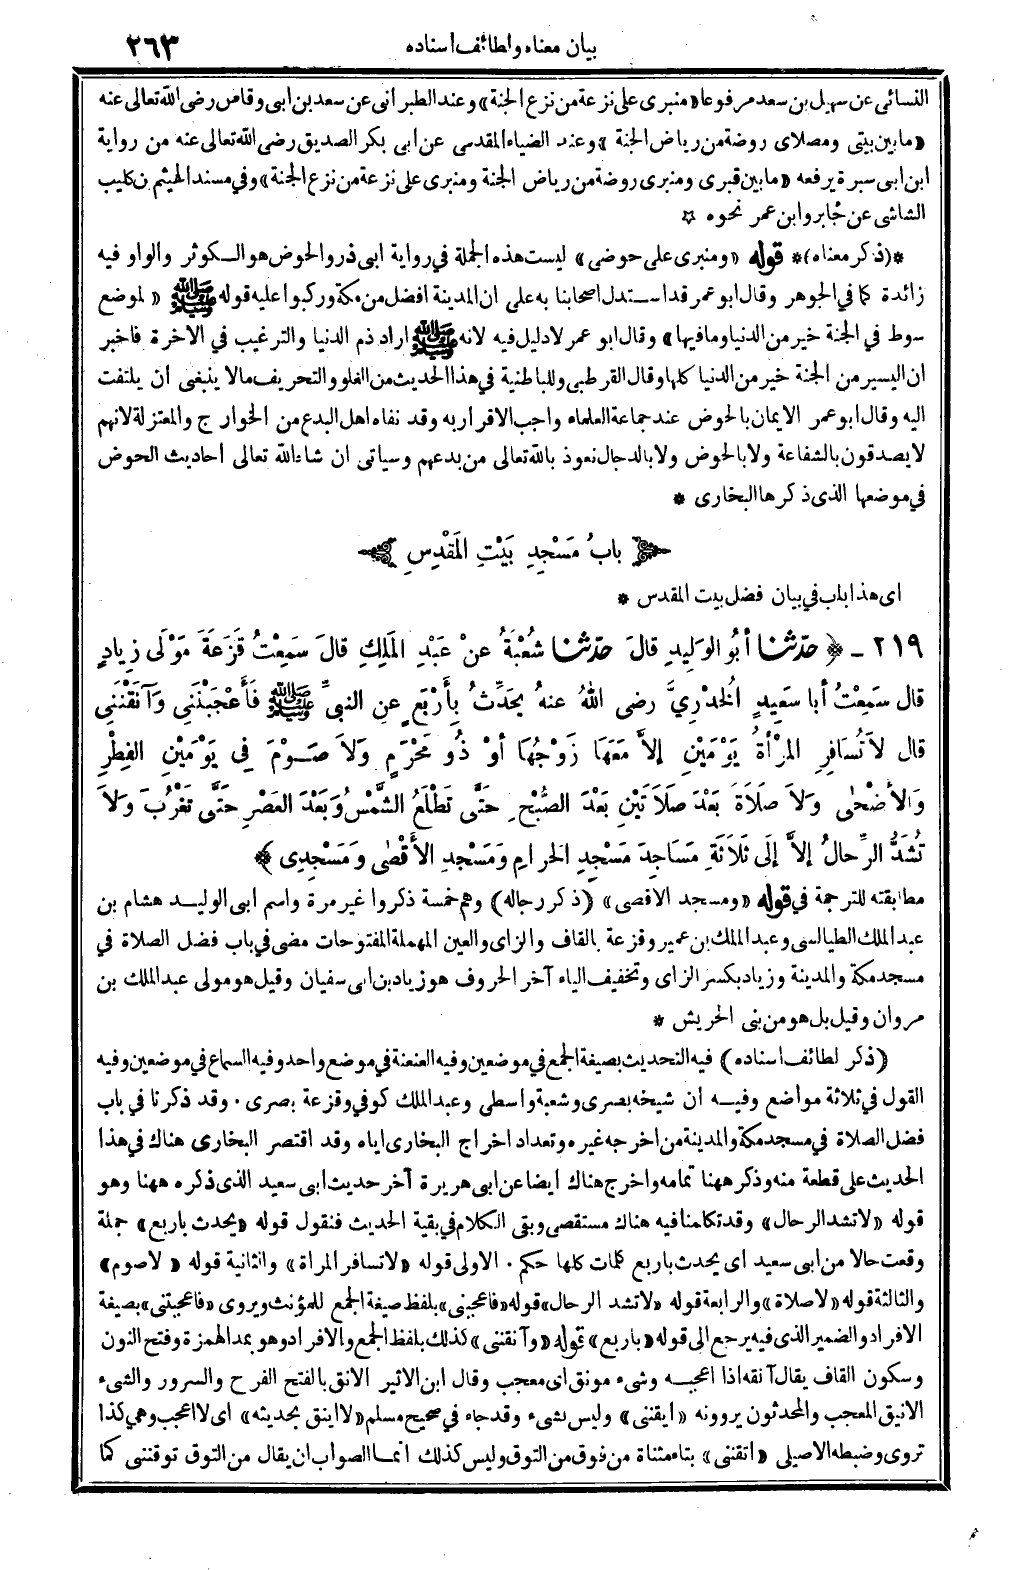 بيان معناه ولطائف اسناده ٢٦٣
النسائى عن سهيل بن سعد مرفوعا «منبرى على نزعة من نزع الجنة» وعند الطبرانى عن سعد بن ابى وقاص رضى الله تعالى عنه
«مابين بيتى ومصلاى روضة من رياض الجنة» وعند الضياء المقدسى عن ابى بكر الصديق رضى الله تعالى عنه من رواية
ابن ابى سبرة يرفعه «مابين قبرى ومنبرى روضة من رياض الجنة ومنبرى على نزعة من نزع الجنة» وفي مسند الهيثم بن كليب
الشاشى عن جابر وابن عمر نحوه ☆
*(ذكر معناه)* قوله «ومنبرى على حوضى» ليست هذه الجملة في رواية ابى ذر والحوض هو الـكوثر والواو فيه
زائدة كما في الجوهر وقال ابو عمر قد اسـتدل اصحابنا به على ان المدينة افضل من مكة وركبوا عليه قوله ﷺ «لموضع
سوط في الجنة خير من الدنيا ومافيها» وقال ابو عمر لا دليل فيه لانه ﷺ اراد ذم الدنيا والترغيب في الاخرة فاخبر
ان اليسير من الجنة خير من الدنيا كلها وقال القرطبى وللباطنية في هذا الحديث من الغلو والتحريف مالا ينبغى ان يلتفت
اليه وقال ابو عمر الايمان بالحوض عند جماعة العلماء واجب الاقرار به وقد نفاه اهل البدع من الخوارج والمعتزلة لانهم
لا يصدقون بالشفاعة ولا بالحوض ولا بالدجال نعوذ بالله تعالى من بدعهم وسياتى ان شاء الله تعالى أحاديث الحوض
في موضعها الذى ذكرها البخارى *
بابُ مَسْجِدِ بَيْتِ المَقْدِسِ
اى هذا باب في بيان فضل بيت المقدس *
٢١٩ ـ ﴿حدّثنا أبُو الوَلِيدِ قالَ حدّثنا شُعْبَةُ عنْ عَبْدِ المَلِكِ قالَ سَمِعْتُ قَزَعَةَ مَوْلَى زِيادٍ
قال سَمِعْتُ أبا سَعِيدٍ الخُدْرِيَّ رضى اللهُ عنهُ يُحَدِّثُ بِأَرْبَعٍ عنِ النبيِّ ﷺ فَأَعْجَبْنَنِى وَآنَقْنَنِى
قال لاَ تُسَافِرِ المَرْأَةُ يَوْمَيْنِ إلاَّ مَعَهَا زَوْجُهَا أوْ ذُو مَحْرَمٍ وَلاَ صَـوْمَ فِى يَوْمَيْنِ الفِطْرِ
وَالأَضْحٰى وَلاَ صَلاَةَ بَعْدَ صَلاَتَيْنِ بَعْدَ الصُّبْحِ حَتَّى تَطْلُعَ الشَّمْسُ وَبَعْدَ العَصْرِ حَتَّى تَغْرُبَ وَلاَ
تُشَدُّ الرِّحالُ إلاَّ إلَى ثَلاَثَةِ مَسَاجِدَ مَسْجِدِ الحَرامِ وَمَسْجِدِ الأَقْصٰى وَمَسْجِدِى﴾
مطابقته للترجمة في قوله «ومسجد الاقصى» (ذكر رجاله) وهم خمسة ذكروا غير مرة واسم ابى الوليـد هشام بن
عبد الملك الطيالسى وعبد الملك بن عمير وقزعة بالقاف والزاى والعين المهملة المفتوحات مضى في باب فضل الصلاة في
مسجد مكة والمدينة وزياد بكسر الزاى وتخفيف الياء آخر الحروف هو زياد بن ابى سفيان وقيل هو مولى عبد الملك بن
مروان وقيل بل هو من بنى الحريش *
(ذكر لطائف اسناده) فيه التحديث بصيغة الجمع في موضعين وفيه العنعنة في موضع واحد وفيه السماع في موضعين وفيه
القول في ثلاثة مواضع وفيـه ان شيخه بصرى وشعبة واسطى وعبد الملك كوفي وقزعة بصرى . وقد ذكرنا في باب
فضل الصلاة في مسجد مكة والمدينة من اخرجه غيره وتعداد اخراج البخارى اياه وقد اقتصر البخارى هناك في هذا
الحديث على قطعة منه وذكر ههنا تمامه واخرج هناك ايضا عن ابى هريرة آخر حديث ابى سعيد الذى ذكره ههنا وهو
قوله «لا تشد الرحال» وقد تكلمنا فيه هناك مستقصى وبقى الكلام في بقية الحديث فنقول قوله «يحدث باربع» جملة
وقعت حالا من ابى سعيد اى يحدث باربع كلمات كلها حكم . الاولى قوله «لا تسافر المراة» والثانية قوله «لاصوم»
والثالثة قوله «لا صلاة» والرابعة قوله «لا تشد الرحال» قوله «فاعجبنى» بلفظ صيغة الجمع للمؤنث ويروى «فاعجبتنى» بصيغة
الافراد والضمير الذى فيه يرجع الى قوله «باربع» قوله «وآنقننى» كذلك بلفظ الجمع والافراد وهو بمد الهمزة وفتح النون
وسكون القاف يقال آنقه اذا اعجبـه وشىء مونق اى معجب وقال ابن الاثير الانق بالفتح الفرح والسرور والشىء
الانيق المعجب والمحدثون يروونه «ايقننى» وليس بشىء وقد جاء في صحيح مسلم «لا اينق بحديثه» اى لا اعجب وهى كذا
تروى وضبطه الاصيلى «اتقننى» بتاء مثناة من فوق من التوق وليس كذلك انمـا الصواب ان يقال من التوق توقننى كما